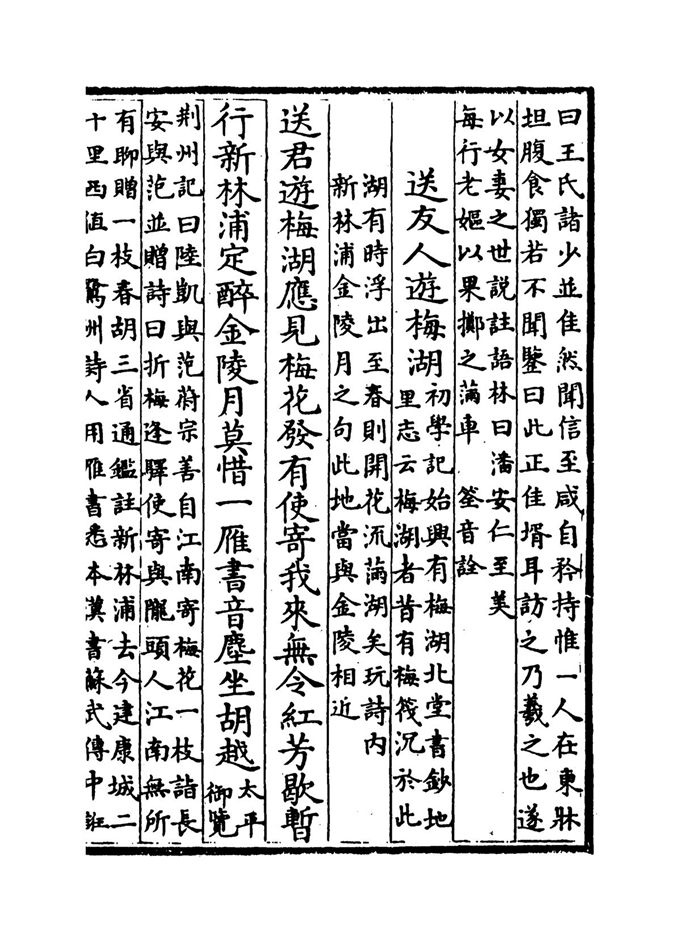 曰王氏諸少並佳然聞信至咸自矜持惟一人在東牀
坦腹食獨若不聞鑒曰此正佳壻耳訪之乃羲之也遂
以女妻之世説註語林曰潘安仁至美
每行老嫗以果擲之滿車　筌音詮
送友人遊梅湖
初學記始興有梅湖北堂書鈔地
里志云梅湖者昔有梅筏沉於此
湖有時浮出至春則開花流滿湖矣玩詩内
新林浦金陵月之句此地當與金陵相近
送君遊梅湖應見梅花發有使寄我來無令紅芳歇暫
行新林浦定醉金陵月莫惜一雁書音塵坐胡越
太平
御覽
荆州記曰陸凱與范蔚宗善自江南寄梅花一枝詣長
安與范並贈詩曰折梅逢驛使寄與隴頭人江南無所
有聊贈一枝春胡三省通鑑註新林浦去今建康城二
十里西值白鷺州詩人用雁書悉本漢書蘇武傳中